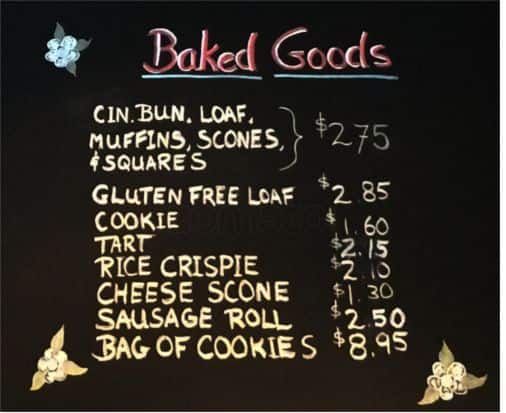 Baked Goods
CIN. BUN, LOAF,
MUFFINS, SCONES, $2.75
& SQUARES
GLUTEN FREE LOAF $2.85
COOKIE $1.60
TART $2.15
RICE CRISPIE $2.10
CHEESE SCONE $1.30
SAUSAGE ROLL $2.50
BAG OF COOKIES $8.95